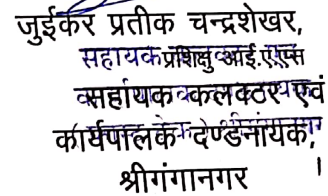 जुईकर प्रतीक चन्द्रशेखर,
सहायक प्रशिक्षु आई.ए.एस
सहायक कलक्टर एवं
कार्यपालक दण्डनायक,
श्रीगंगानगर